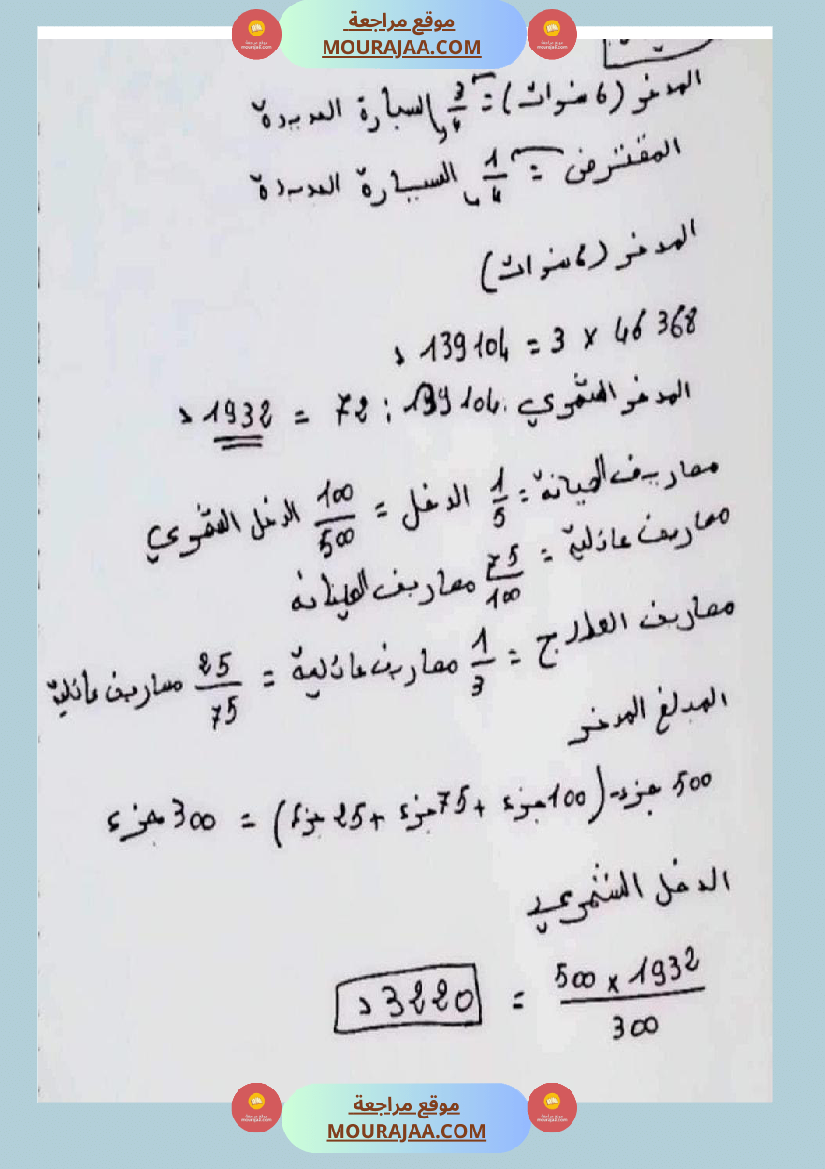 موقع مراجعة
MOURAJAA.COM
المدخر (6 سنوات) = 3/4 السيارة الجديدة
المقترض = 1/4 السيارة الجديدة
المدخر (6 سنوات)
46 368 × 3 = 139 104 د
المدخر الشهري: 139 104 : 72 = 1932 د
مصاريف الصيانة = 1/5 الدخل = 100/500 الدخل الشهري
مصاريف عائلية = 75/100 مصاريف الصيانة
مصاريف العلاج = 1/3 مصاريف عائلية = 25/75 مصاريف عائلية
المبلغ المدخر
500 جزء - (100 جزء + 75 جزء + 25 جزء) = 300 جزء
الدخل الشهري
500 × 1932 / 300 = 3220 د
موقع مراجعة
MOURAJAA.COM